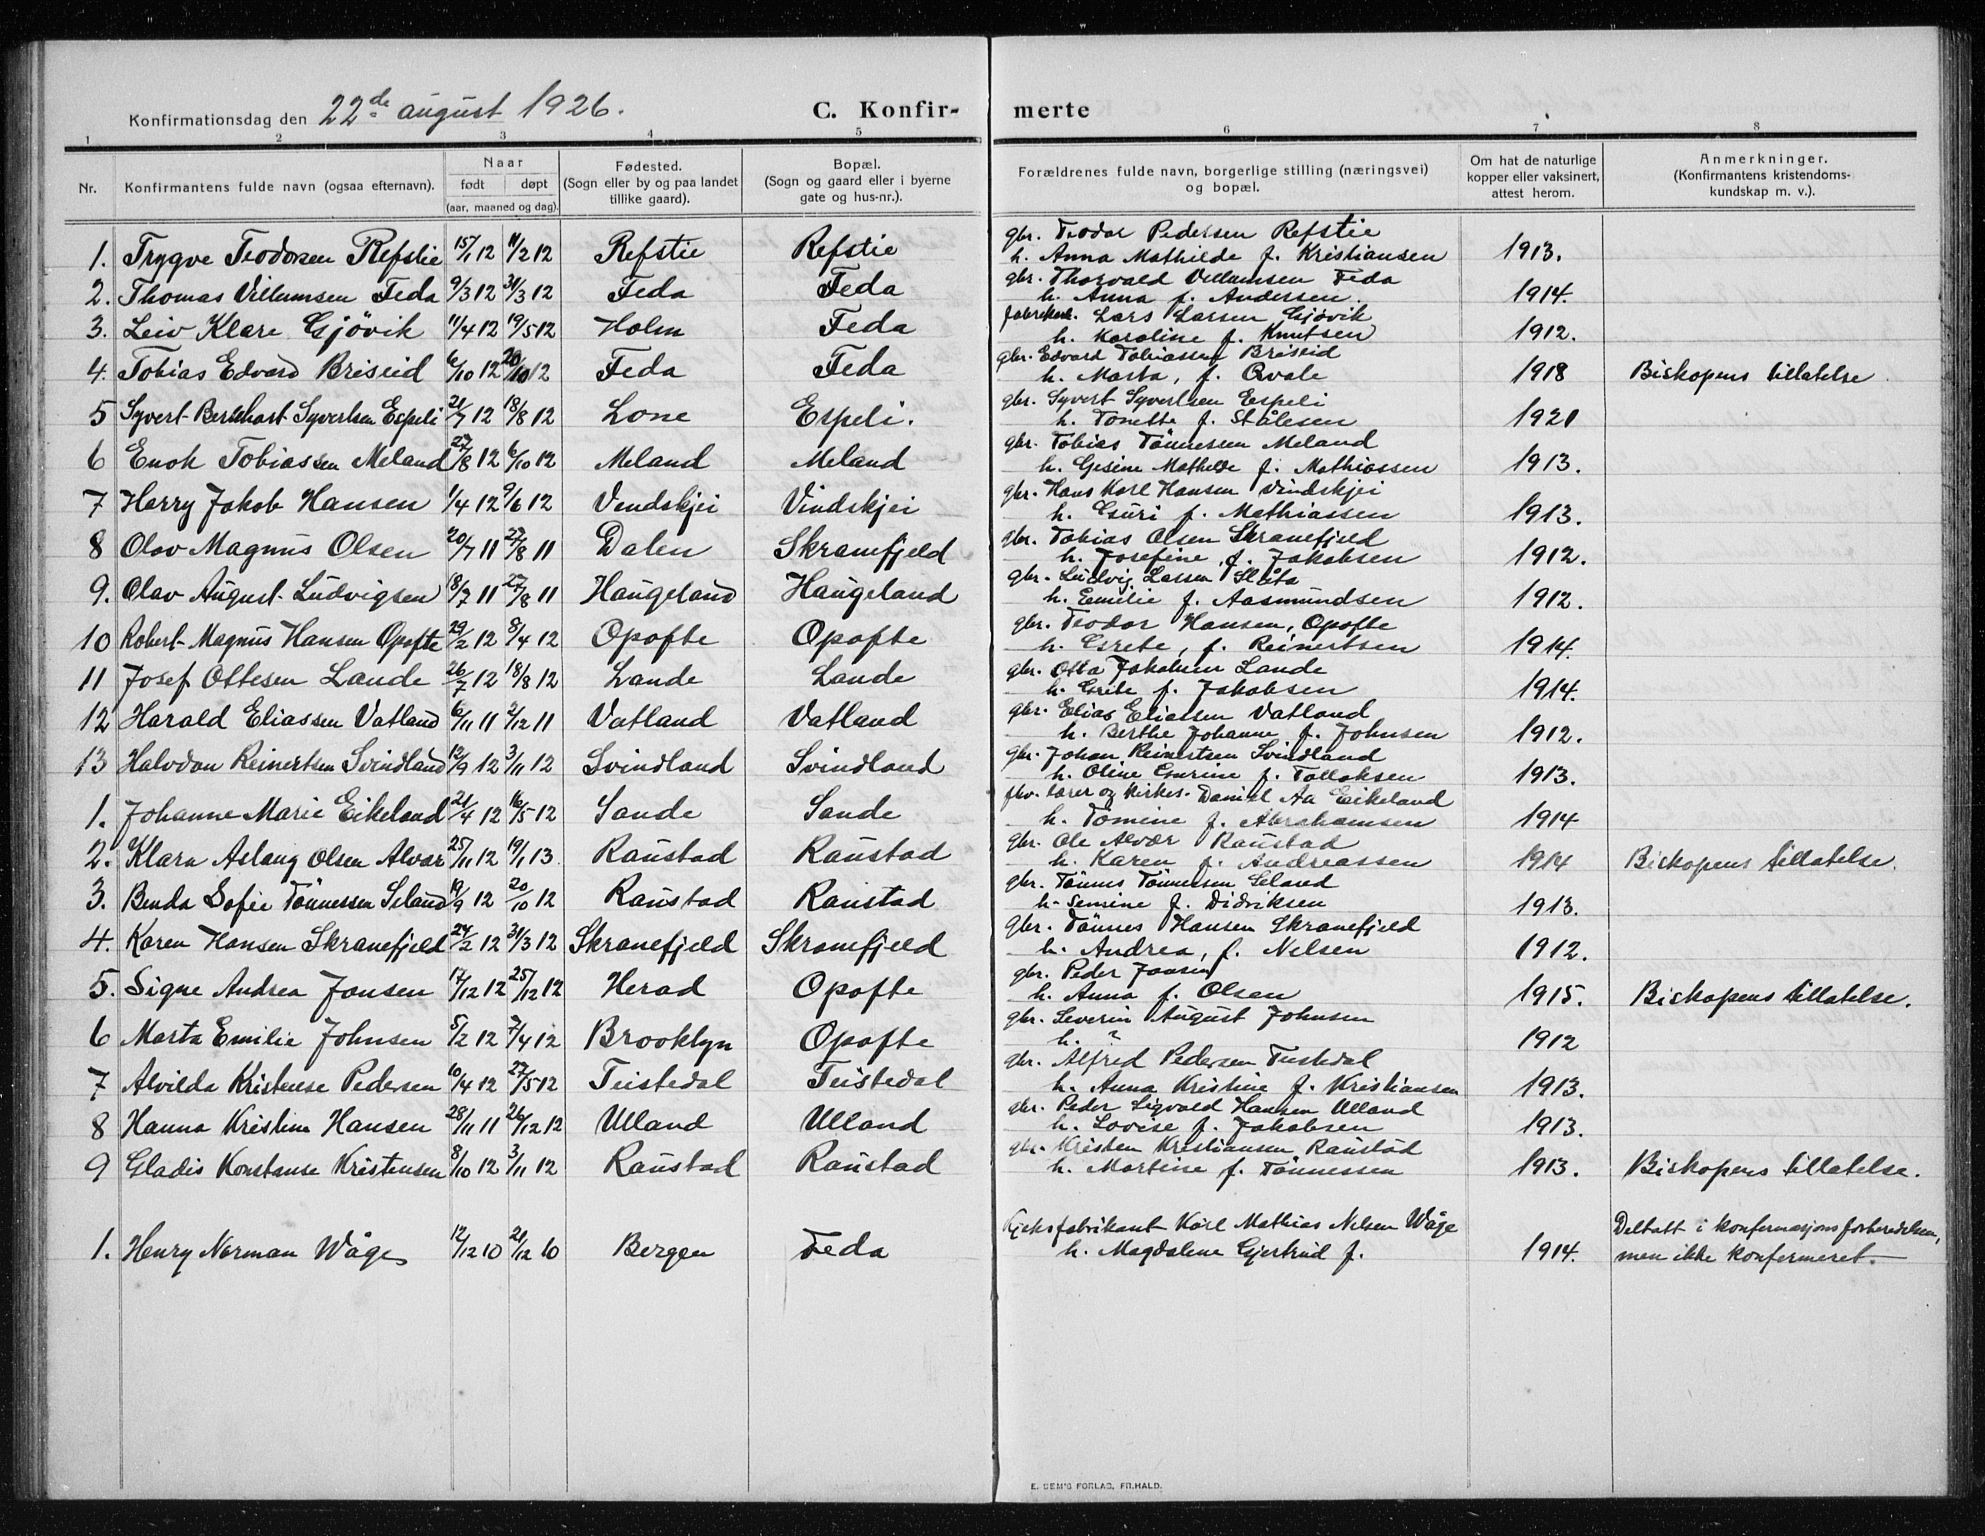 Konfirmationsdag den 22de august 1926.
C. Konfir-
merte
1 2 3 4 5 6 7 8
Nr. Konfirmantens fulde navn (ogsaa efternavn). Naar født døpt (aar, maaned og dag). Fødested. (Sogn eller by og paa landet tillike gaard). Bopæl. (Sogn og gaard eller i byerne gate og hus-nr.). Forældrenes fulde navn, borgerlige stilling (næringsvei) og bopæl. Om hat de naturlige kopper eller vaksinert, attest herom. Anmerkninger. (Konfirmantens kristendoms-kundskap m. v.).
gbr. Teodor Pedersen Refstie
1. Trygve Teodorsen Refstie 15/1 12 11/2 12 Refstie Refstie h. Anna Mathilde f. Kristiansen 1913.
gbr. Thorvald Villumsen Feda
2. Thomas Villumsen Feda 9/3 12 31/3 12 Feda Feda h. Anna f. Andersen. 1914.
Lars Larsen Gjövik
3. Leiv Klare Gjövik 11/4 12 19/5 12 Holm Feda h. Karoline f. Knutsen 1912.
gbr. Edvard Tobiassen Briseid
4. Tobias Edvard Briseid 6/10 12 20/10 12 Feda Feda h. Marta, f. Qvale 1918 Biskopens tillatelse
gbr. Syvert Syvertsen Espeli
5 Syvert Bernhart Syvertsen Espeli 21/7 12 18/8 12 Lone Espeli. h. Tonette f. Stålesen 1921
gbr. Tobias Tönnesen Meland
6 Enok Tobiassen Meland 27/8 12 6/10 12 Meland Meland h. Gesine Mathilde f. Mathiassen 1913.
gbr. Hans Karl Hansen Vindskjei
7 Harry Jakob Hansen 1/4 12 9/6 12 Vindskjei Vindskjei h. Guri f. Mathiassen 1913.
gbr. Tobias Olsen Skranefjeld
8 Olav Magnus Olsen 20/7 11 27/8 11 Dalen Skranefjeld h. Josefine, f. Jakobsen 1912.
gbr. Ludvig Larsen Slåta
9. Olav August Ludvigsen 18/7 11 27/8 11 Haugeland Haugeland h. Emilie f. Aasmundsen 1912.
gbr. Teodor Hansen, Opofte
10 Robert Magnus Hansen Opofte 29/2 12 8/4 12 Opofte Opofte h. Grete, f. Reinertsen 1914.
gbr. Otto Jakobsen Lande
11 Josef Ottesen Lande 26/7 12 18/8 12 Lande Lande h. Grete f. Jakobsen 1914.
gbr. Elias Eliassen Vatland
12 Harald Eliassen Vatland 6/11 11 2/12 11 Vatland Vatland h. Berthe Johanne f. Johnsen 1912.
gbr. Johan Reinertsen Svindland
13 Halvdan Reinertsen Svindland 12/9 12 3/11 12 Svindland Svindland h. Oline Gurine f. Tollaksen 1913.
fhv. lærer og kirkes. Daniel Aa Eikeland
1. Johanne Marie Eikeland 21/4 12 16/5 12 Sande Sande h. Tomine f. Abrahamsen 1914
gbr. Ole Alvær Raustad
2. Klara Aslaug Olsen Alvær 25/11 12 19/1 13. Raustad Raustad h. Karen f. Andreassen 1914 Biskopens tillatelse.
gbr. Tönnes Tönnessen Seland
3. Benda Sofie Tönnessen Seland 19/9 12 20/10 12 Raustad Raustad h. Semine f. Didriksen 1913.
gbr. Tönnes Hansen Skranefjeld
4. Karen Hansen Skranefjeld 24/2 12 31/3 12 Skranefjeld Skranefjeld h. Andrea, f. Nelsen 1912.
gbr. Peder Jansen
5. Signe Andrea Jansen 17/12 12 25/12 12 Herad Opofte h. Anna f. Olsen 1915. Biskopens tillatelse.
gbr. Severin August Johnsen
6 Marta Emilie Johnsen 5/2 12 7/4 12 Brooklyn Opofte h. ? 1912
gbr. Alfred Pedersen Tistedal
7 Alvilda Kristense Pedersen 10/4 12 27/5 12 Teistedal Teistedal h. Anna Kristine f. Kristiansen 1913.
gbr. Peder Sigvald Hansen Ulland
8 Hanna Kristine Hansen 28/11 11 26/12 12 Ulland Ulland h. Lovise f. Jakobsen 1913.
gbr. Kristen Kristiansen Raustad
9 Gladis Konstanse Kristensen 8/10 12 3/11 12 Raustad Raustad h. Martine f. Tönnessen 1913. Biskopens tillatelse.
Kjeksfabrikant Karl Mathias Nelsen Wåge Deltatt i konfirmasjonsforberedelsen,
1. Henry Norman Wåge 12/12 10 21/12 10 Bergen Feda h. Magdalene Gjertrud f. 1914. men ikke konfirmeret.
E. SEM'S FORLAG, FR.HALD.